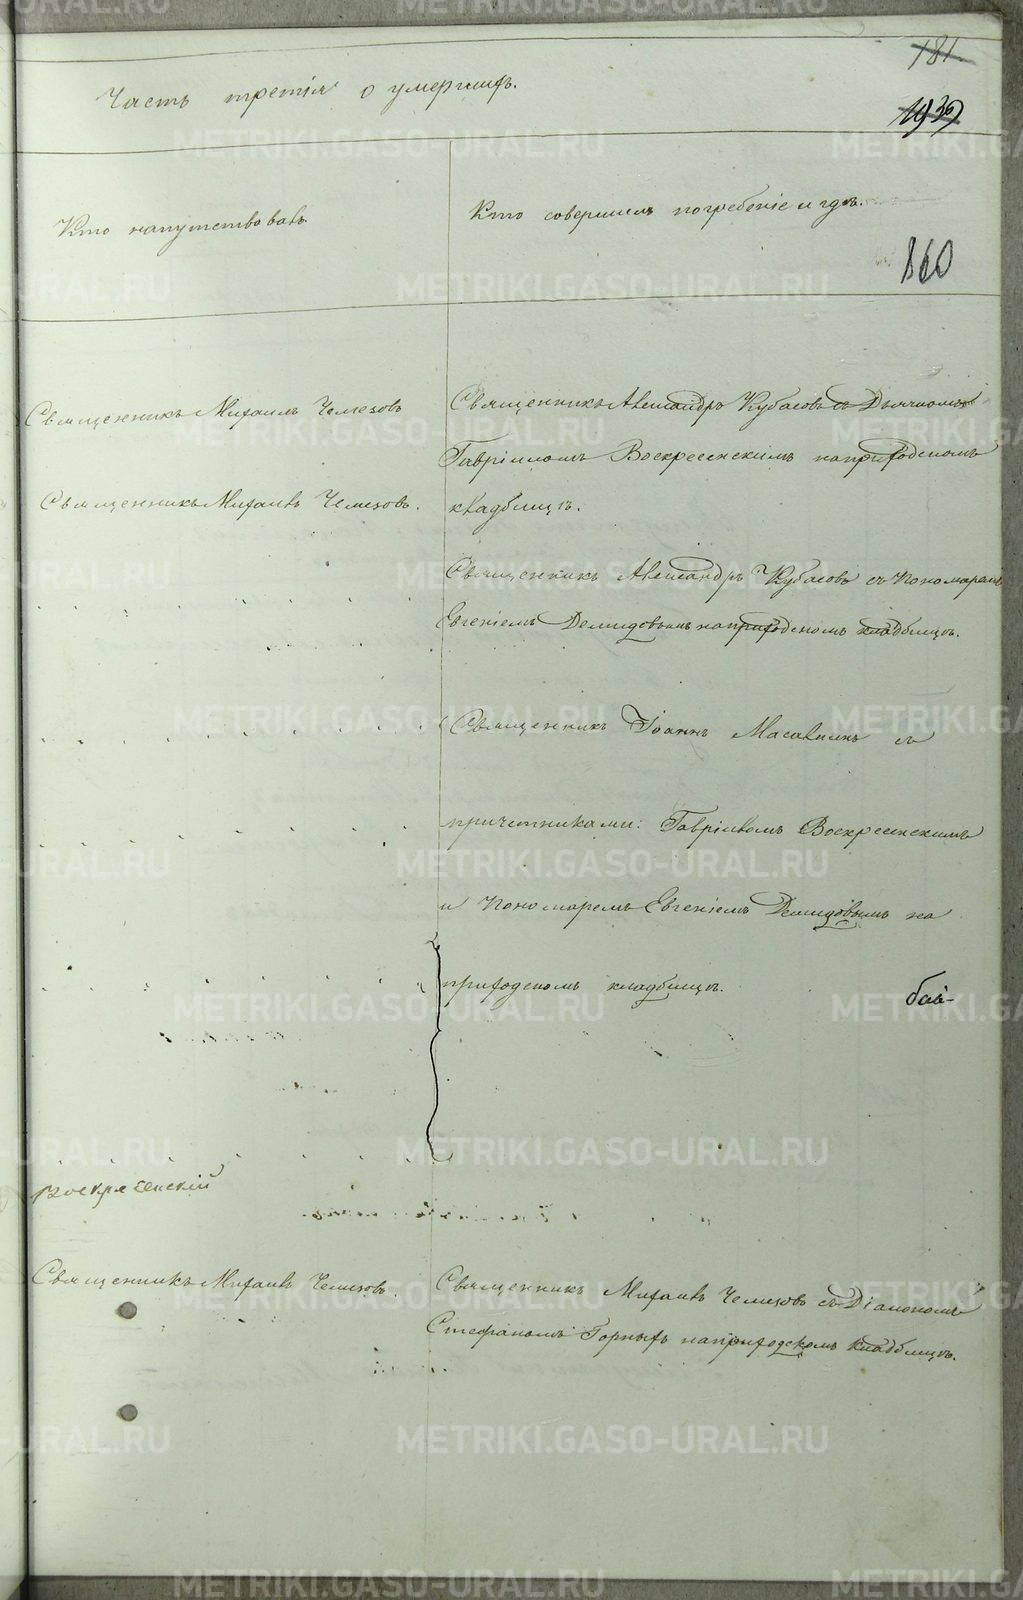 181
1939
Часть третія о умершихъ.
Кто напутствовалъ
Кто совершилъ погребеніе и гдѣ.
860
Священникъ Михаилъ Чемезовъ
Священникъ Александръ Кубасовъ съ Дьячкомъ
Гавріиломъ Воскресенскимъ на приходскомъ
Священникъ Михаилъ Чемезовъ.
кладбищѣ.
Священникъ Александръ Кубасовъ съ Пономаремъ
Евгеніемъ Демидовымъ на приходскомъ кладбищѣ.
Священникъ Іоаннъ съ
причетниками: Гавріиломъ Воскресенскимъ
и Пономаремъ Евгеніемъ Демидовымъ на
приходскомъ кладбищѣ.
Воскресенскій
Священникъ Михаилъ Чемезовъ.
Священникъ Михаилъ Чемезовъ съ Діакономъ
Стефаномъ Горныхъ на приходскомъ кладбищѣ.
METRIKI.GASO-URAL.RU